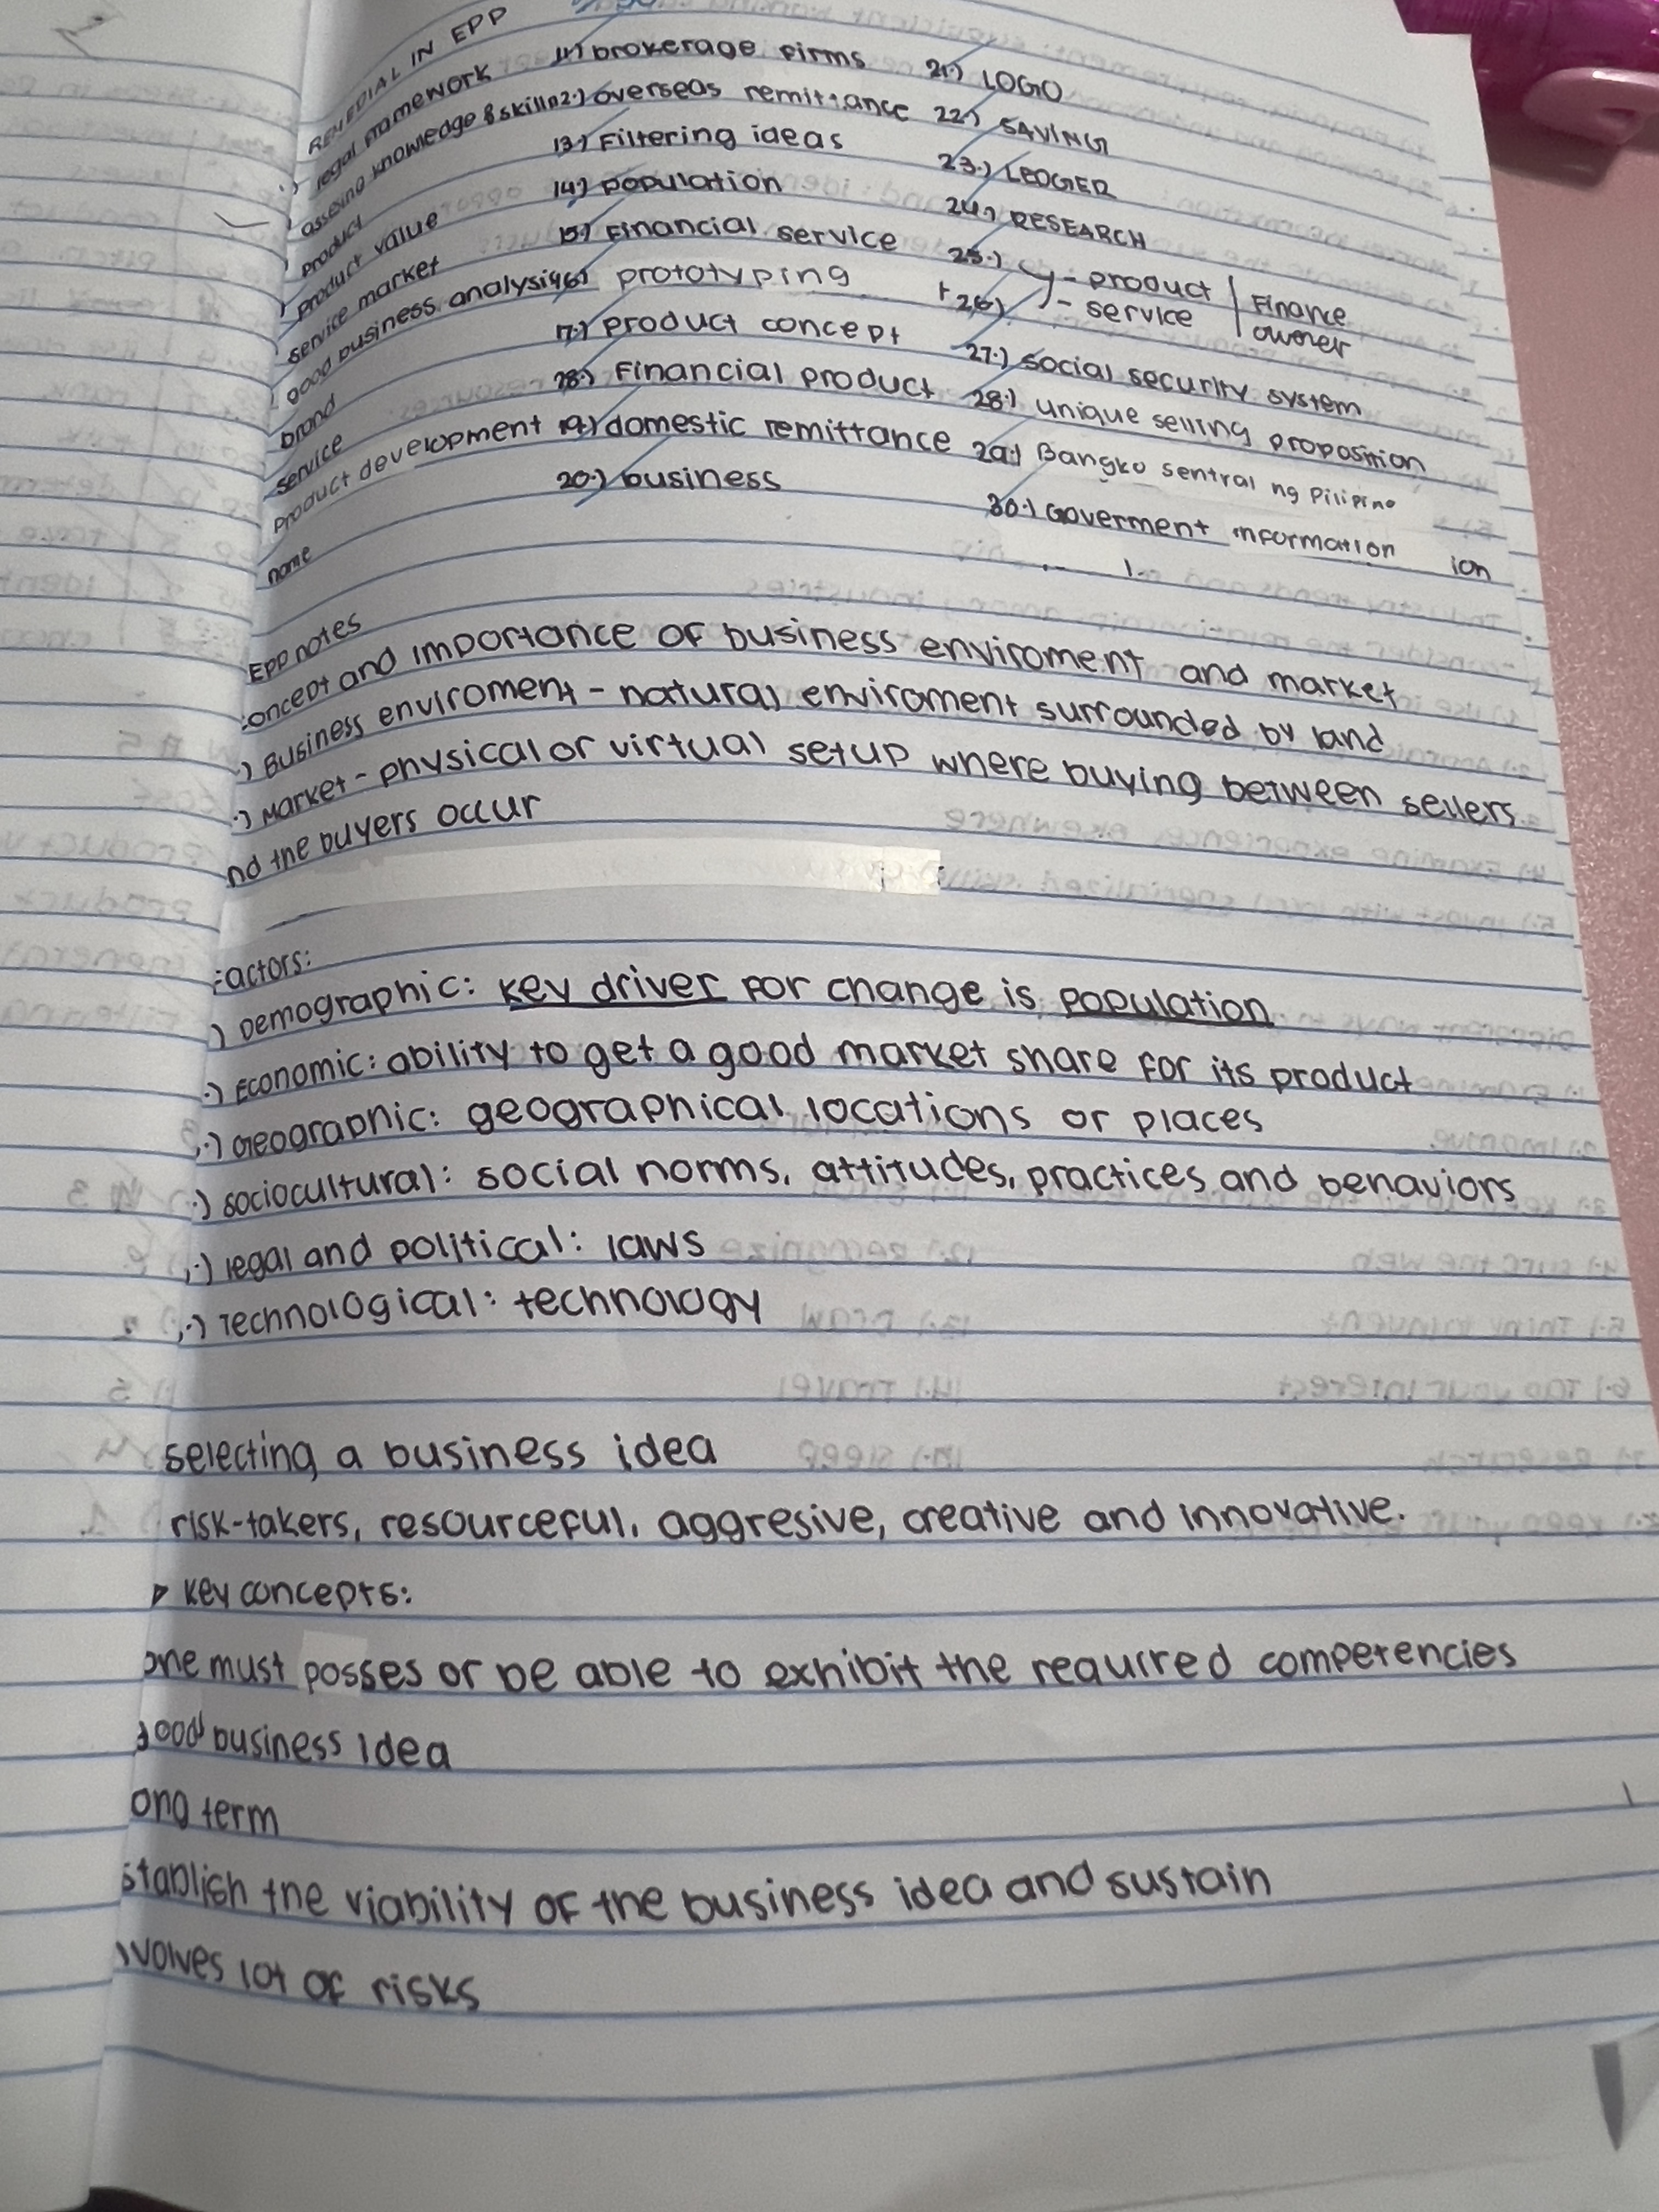 REMEDIAL IN EPP
legal framework 11.) brokerage firms 21.) LOGO
assesing knowledge & skills 12.) overseas remittance 22.) SAVING
product 13.) Filtering ideas 23.) LEDGER
product value 14.) population 24.) RESEARCH
service market 15.) Financial service 25.) - product | Finance
good business analysis 16.) prototyping 26.) - service | owner
brand 17.) product concept 27.) social security system
service 18.) Financial product 28.) unique selling proposition
product development 19.) domestic remittance 29.) Bangko sentral ng Pilipino
name 20.) business 30.) Goverment information ion
EPP notes
concept and importance of business enviroment and market
.) Business enviroment - natural enviroment surrounded by land
.) Market - physical or virtual setup where buying between sellers
nd the buyers occur
Factors:
) Demographic: key driver for change is population
.) Economic: ability to get a good market share for its product
.) Geographic: geographical locations or places
.) sociocultural: social norms, attitudes, practices and behaviors
.) legal and political: laws
.) Technological: technology
selecting a business idea
risk-takers, resourceful, aggresive, creative and innovative.
▷ key concepts:
one must posses or be able to exhibit the required competencies
good business idea
ong term
stablish the viability of the business idea and sustain
nvolves lot of risks